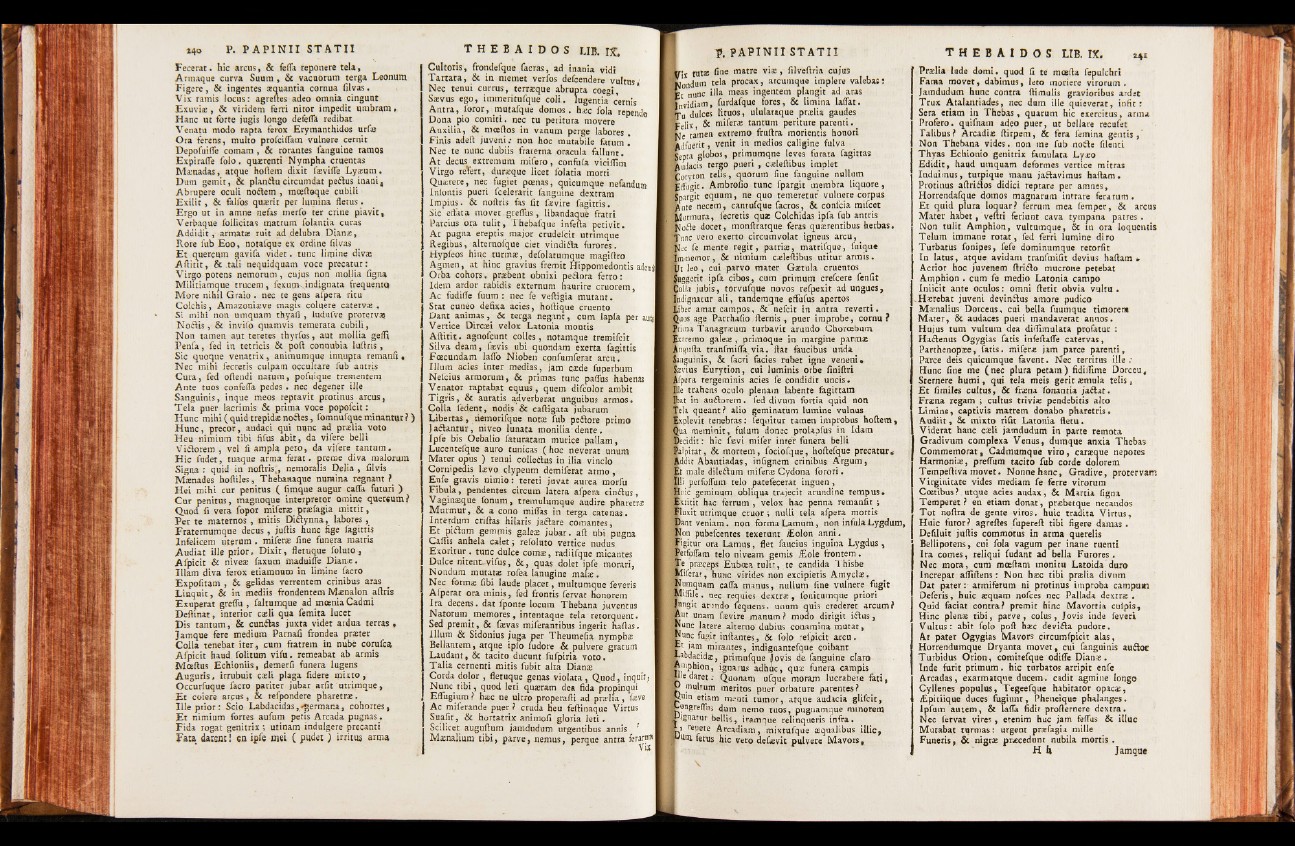 240 P. PAPINII STATII
Fecerat. hic arcus, & fessa reponere tela,
Armaque curva Suum, & vacuorum terga Leonum
Figere, & ingentes æquantia cornua silvas.
Vix ramis locus: agrestes adeo omnia cingunt
Exuviæ, & viridem ferri nitor impedit umbram.
Hanc ut forte jugis longo defessa redibat
Venatu modo rapta ferox Erymanthidos ursæ
Ora ferens, multo proscissam vulnere cernit
Deposuisse comam, & rorantes sanguine ramos
Expirasse solo. quærenti Nympha cruentas
Mænadas, atque hostem dixit sævisse Lyæum.
Dum gemit, & planctu circumdat pectus inani,
Abrupere oculi noctem, mœstoque cubili
Exilit, & falsos quærit per lumina fletus.
Ergo ut in amne nefas merso ter crine piavit,
Verbaque sollicitas matrum solantia curas
Addidit, armatæ ruit ad delubra Dianæ,
Rore sub Eoo, notasque ex ordine silvas
Et quercum gavisa videt. tunc limine divæ
Astitit, & tali nequidquam voce precatur:
Virgo potens nemorum, cujus non mollia signa
Militiamque trucem, sexum indignata frequento
More nihil Graio. nec te gens aspera ritu
Colchis, Amazoniæve magis coluere catervæ.
Si mihi non umquam thyasi, lususve protervæ
Noctis, & inviso quamvis temerata cubili,
Non tamen aut teretes thyrsos, aut mollia gessi
Pensa, sed in tetricis & post connubia lustris,
Sic quoque venatrix, animumque innupta remansi.
Nec mihi secretis culpam occultare sub antris
Cura, sed ostendi natum, posuique trementem
Ante tuos confessa pedes. nec degener ille
Sanguinis, inque meos reptavit protinus arcus,
Tela puer lacrimis & prima voce poposcit:
Hunc mihi (quid trepidæ noctes, somnusque minantur?)
Hunc, precor, audaci qui nunc ad prælia voto
Heu nimium tibi fisus abit, da visere belli
Victorem, vel si ampla peto, da visere tantum.
Hic sudet, tusque arma ferat. preme diva malorum
Signa: quid in nostris, nemoralis Delia, silvis
Mænades hostiles, Thebanaque numina regnant?
Hei mihi cur penitus (simque augur cassa futuri)
Cur penitus, magnoque interpretor omine quercum?
Quod si vera sopor miseræ præsagia mittit,
Per te maternos, mitis Dictynna, labores,
Fraternumque decus, justis hunc fige sagittis
Infelicem uterum. miseræ sine funera matris
Audiat ille prior. Dixit, fletuque soluto,
Aspicit & niveæ saxum maduisse Dianæ.
Illam diva ferox etiamnum in limine sacro
Expositam, & gelidas verrentem crinibus aras
Linquit, & in mediis frondentem Mænalon astris
Exuperat gressu, saltumque ad mœnia Cadmi
Destinat, interior cæli qua semita lucet
Dis tantum, & cunctas juxta videt ardua terras,
Jamque fere medium Parnasi frondea præter
Colla tenebat iter, cum fratrem in nube corusca
Aspicit haud solitum visu. remeabat ab armis
Mœstus Echioniis, demersi funera lugens
Auguris. irrubuit cæli plaga sidere mixto,
Occursuque sacro pariter jubar arsit utrimque,
Et coiere arcus, & respondere pharetræ.
Ille prior: Scio Labdacidas, germana, cohortes,
Et nimium fortes ausum petis Arcada pugnas.
Fida rogat genitrix; utinam indulgere precanti
Fata darent! en ipse mei (pudet) irritus arma
THEBAIDOS LIB. IX.
Cultoris, frondesque sacras, ad inania vidi
Tartara, & in memet versos descendere vultus.
Nec tenui currus, terræque abrupta coegi,
Sævus ego, immeritusque coli. lugentia cernis
Antra, soror, mutasque domos. hæc sola rependo
Dona pio comiti. nec tu peritura movere
Auxilia, & mœstos in vanum perge labores.
Finis adest juveni: non hoc mutabile fatum.
Nec te nunc dubiis fraterna oracula fallunt.
At decus extremum misero, confusa vicissim
Virgo refert, duræque licet solatia morti
Quærere, nec fugiet pœnas, quicumque nefandum
Insontis pueri scelerarit sanguine dextram
Impius. & nostris fas sit sævire sagittis.
Sic effata movet gressus, libandaque fratri
Parcius ora tulit, Thebasque infesta petivit.
At pugna ereptis major crudescit utrimque
Regibus, alternosque ciet vindicta furores.
Hypseos hinc turmæ, desolatumque magistro
Agmen, at hinc gravius fremit Hippomedontis adempti
Orba cohors. præbent obnixi pectora ferro:
Idem ardor rabidis externum haurire cruorem,
Ac fudisse suum: nec se vestigia mutant.
Stat cuneo defixa acies, hostique cruento
Dant animas, & terga negant, cum lapsa per auras
Vertice Dircæi velox Latonia montis
Astitit. agnoscunt colles, notamque tremiscit
Silva deam, sævis ubi quondam exerta sagittis
Fœcundam lasso Nioben consumserat arcu.
Illum acies inter medias, jam cæde superbum
Nescius armorum, & primas tunc passus habenas
Venator raptabat equus, quem discolor ambit
Tigris, & auratis adverberat unguibus armos.
Colla sedent, nodis & castigata jubarum
Libertas, nemorisque notæ sub pectore primo
Jactantur, niveo lunata monilia dente.
Ipse bis Oebalio saturatam murice pallam,
Lucentesque auro tunicas (hoc neverat unum
Mater opus) tenui collectus in ilia vinclo
Cornipedis lævo clypeum demiserat armo,
Ense gravis nimio: tereti juvat aurea morsu
Fibula, pendentes circum latera aspera cinctus,
Vaginæque sonum, tremulumque audire pharetræ
Murmur, & a cono missas in terga catenas.
Interdum cristas hilaris jactare comantes,
Et pictum gemmis galeæ jubar. ast ubi pugna
Cassis anhela calet; resoluto vertice nudus
Exoritur. tunc dulce comæ, radiisque micantes
Dulce nitent visus, &, quas dolet ipse morari,
Nondum mutatæ rosea lanugine malæ.
Nec formæ sibi laude placet, multumque severis
Asperat ora minis, sed frontis servat honorem
Ira decens. dat sponte locum Thebana juventus
Natorum memores, intentaque tela retorquent.
Sed premit, & sævas miserantibus ingerit hastas.
Illum & Sidonius juga per Theumesia nymphæ
Bellantem, atque ipso sudore & pulvere gratum
Laudant, & tacito ducunt suspiria voto.
Talia cernenti mitis subit alta Dianæ
Corda dolor, fletuque genas violata, Quod, inquit,
Nunc tibi, quod leti quæram dea fida propinqui
Effugium? hæc ne ultro properasti ad prælia, sæve
Ac miserande puer? cruda heu festinaque Virtus
Suasit, & hortatrix animosi gloria leti.
Scilicet augustum jamdudum urgentibus annis
Mænalium tibi, parve, nemus, perque antra ferarum
Vix
P. PAPINII STATII
Vix tutæ sine matre viæ, silvestria cujus
Nondum tela procax, arcumque implere valebas:
Et nunc illa meas ingentem plangit ad aras
Invidiam, surdasque fores, & limina lassat.
Tu dulces lituos, ululataque prælia gaudes
Felix, & miseræ tantum periture parenti.
Ne tamen extremo frustra morientis honori
Adfuerit, venit in medios caligine fulva
Septa globos, primumque leves furata sagittas
Audacis tergo pueri, cælestibus implet
Coryton telis, quorum sine sanguine nullum
Effugit. Ambrosio tunc spargit membra liquore,
Spargit equum, ne quo temeretur vulnere corpus
Ante necem, cantusque sacros, & conscia miscet
Mormura, secretis quæ Colchidas ipsa sub antris
Nocte docet, monstratque feras quærentibus herbas.
Tunc vero exerto circumvolat igneus arcu,
Nec se mente regit, patriæ, matrisque, suique
Immemor, & nimium cælestibus utitur armis.
Ut leo, cui parvo mater Gætula cruentos
Suggerit ipsa cibos, cum primum crescere sensit
Colla jubis, torvusque novos respexit ad ungues,
Indignatur ali, tandemque effusus apertos
Liber amat campos, & nescit in antra reverti.
Quos age Parrhasio sternis, puer improbe, cornu?
Prima Tanagræum turbavit arundo Choræbum
Extremo galeæ, primoque in margine parmæ
Angusta transmissa via. stat faucibus unda
Sanguinis, & sacri facies rubet igne veneni.
Sævius Eurytion, cui luminis orbe sinistri
Aspera tergeminis acies se condidit uncis.
Ille trahens oculo plenam labente sagittam
Ibat in auctorem. sed divum fortia quid non
Tela queant? alio geminatum lumine vulnus
Explevit tenebras: sequitur tamen improbus hostem,
Qua meminit, fusum donec prolapsus in Idam
Decidit: hic sævi miser inter funera belli
Palpitat, & mortem, sociosque, hostesque precatur.
Addit Abantiadas, insignem crinibus Argum,
Et male dilectum miseræ Cydona sorori.
Illi perfossum telo patefecerat inguen,
Huic geminum obliqua trajecit arundine tempus.
Exilit hac ferrum, velox hac penna remansit;
Fluxit utrimque cruor; nulli tela aspera mortis
Dant veniam. non forma Lamum, non insula Lygdum,
Non pubescentes texerunt Æolon anni.
Figitur ora Lamus, flet saucius inguina Lygdus,
Perfossam telo niveam gemis Æole frontem.
Te præceps Eubœa tulit, te candida Thisbe
Miserat, hunc virides non excipietis Amyclæ.
Numquam cassa manus, nullum sine vulnere fugit
Missile. nec requies dextræ, sonitumque priori
Jungit arundo sequens. unum quis crederet arcum?
Aut unam sævire manum? modo dirigit ictus,
Nunc latere alterno dubius conamina mutat,
Nunc fugit instantes, & solo respicit arcu.
Et jam mirantes, indignantesque coibant
Labdacidæ, primusque Jovis de sanguine claro
Amphion, ignarus adhuc, quæ funera campis
Ille daret: Quonam usque moram lucrabere fati,
O multum meritos puer orbature parentes?
Quin etiam menti tumor, atque audacia gliscit,
Congressus dum nemo tuos, pugnamque minorem
Dignatur bellis, iramque relinqueris infra.
I, repete Arcadiam, mixtusque æqualibus illic,
Dum ferus hic vero desævit pulvere Mavors,
THEBAIDOS LIB. IX. 241
Prælia lude domi. quod si te mœsta sepulchri
Fama movet, dabimus, leto moriere virorum.
Jamdudum hunc contra stimulis gravioribus ardet
Trux Atalantiades, nec dum ille quieverat, infit:
Sera etiam in Thebas, quarum hic exercitus, arma
Profero. quisnam adeo puer, ut bellare recuset
Talibus? Arcadiæ stirpem, & fera semina gentis,
Non Thebana vides. non me sub nocte silenti
Thyas Echionio genitrix famulata Lyæo
Edidit, haud umquam deformes vertice mitras
Induimus, turpique manu jactavimus hastam.
Protinus astrictos didici reptare per amnes,
Horrendasque domos magnarum intrare ferarum.
Et quid plura loquar? ferrum mea semper, & arcus
Mater habet, vestri feriunt cava tympana patres.
Non tulit Amphion, vultumque, & in ora loquentis
Telum immane rotat, sed ferri lumine diro
Turbatus sonipes, sese dominumque retorsit
In latus, atque avidam transmisit devius hastam.
Acrior hoc juvenem stricto mucrone petebat
Amphion. cum se medio Latonia campo
Iniicit ante oculos: omni stetit obvia vultu.
Hærebat juveni devinctus amore pudico
Mænalius Dorceus, cui bella suumque timorem
Mater, & audaces pueri mandaverat annos.
Hujus tum vultum dea dissimulata profatur:
Hactenus Ogygias satis infestasse catervas,
Parthenopæe, satis. miseræ jam parce parenti,
Parce deis quicumque favent. Nec territus ille:
Hunc sine me (nec plura petam) fidissime Dorceu,
Sternere humi, qui tela meis gerit æmula telis,
Et similes cultus, & fræna sonantia jactat.
Fræna regam; cultus triviæ pendebitis alto
Limine, captivis matrem donabo pharetris.
Audiit, & mixto risit Latonia fletu.
Viderat hanc cæli jamdudum in parte remota
Gradivum complexa Venus, dumque anxia Thebas
Commemorat, Cadmumque viro, caræque nepotes
Harmoniæ, pressum tacito sub corde dolorem
Tempestiva movet. Nonne hanc, Gradive, protervam
Virginitate vides mediam se ferre virorum
Cœtibus? utque acies audax, & Martia signa
Temperet? en etiam donat, præbetque necandos
Tot nostra de gente viros. huic tradita Virtus,
Huic furor? agrestes superest tibi figere damas.
Desiluit justis commotus in arma querelis
Bellipotens, cui sola vagum per inane ruenti
Ira comes, reliqui sudant ad bella Furores.
Nec mora, cum mœstam monitu Latoida duro
Increpat assistens: Non hæc tibi prælia divum
Dat pater: armiferum ni protinus improba campum
Deseris, huic æquam nosces nec Pallada dextræ.
Quid faciat contra? premit hinc Mavortia cuspis,
Hinc plenæ tibi, parve, colus, Jovis inde severi
Vultus: abit solo post hæc devicta pudore.
At pater Ogygias Mavors circumspicit alas,
Horrendumque Dryanta movet, cui sanguinis auctor
Turbidus Orion, comitesque odisse Dianæ.
Inde furit primum. hic turbatos arripit ense
Arcadas, exarmatque ducem. cadit agmine longo
Cyllenes populus, Tegeesque habitator opacæ,
Æpitiique duces fugiunt, Pheneique phalanges.
Ipsum autem, & lassa fidit prosternere dextra.
Nec servat vires, etenim huc jam fessus & illuc
Mutabat turmas: urgent præsagia mille
Funeris, & nigræ præcedunt nubila mortis.
H h Jamque